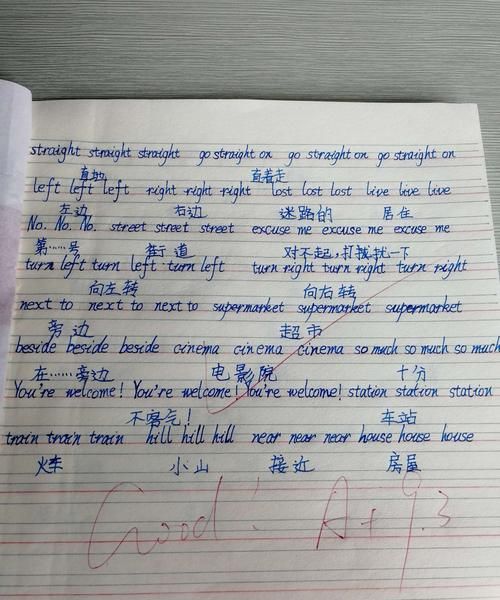 straight straight straight go straight on go straight on go straight on
直地 直着走
left left left right right right lost lost lost live live live
左边 右边 迷路的 居住
No. No. No. street street street excuse me excuse me excuse me
第……号 街道 对不起,打扰一下
turn left turn left turn left turn right turn right turn right
向左转 向右转
next to next to next to supermarket supermarket supermarket
旁边 超市
beside beside beside cinema cinema cinema so much so much so much
在……旁边 电影院 十分
You're welcome! You're welcome! You're welcome! station station station
不客气! 车站
train train train hill hill hill near near near house house house
火车 小山 接近 房屋
Good! A+ 9.3